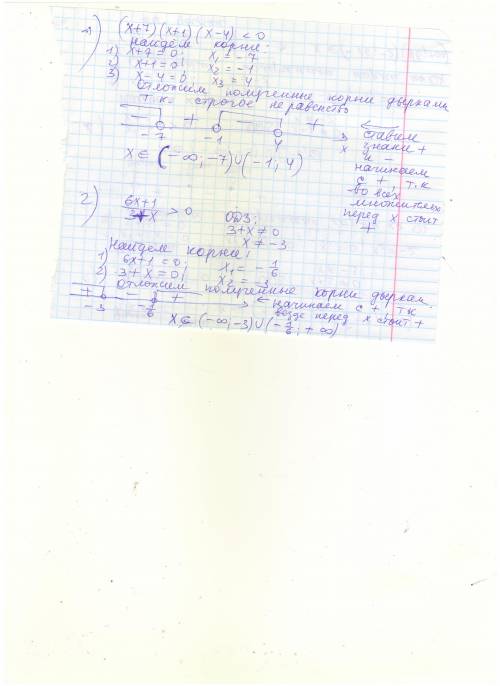 1) (x+7)(x+1)(x-4) < 0
Найдём корни:
1) x+7=0; x₁ = -7
2) x+1=0; x₂ = -1
3) x-4=0; x₃ = 4
Отложим полученные корни дырками
т.к. строгое неравенство
- + - +
-7 -1 4 x
ставим
знаки +
и -
начинаем
с +, т.к
во всех
множителях
перед x стоит
+
x∈ (-∞; -7)∪(-1; 4)
2) 6x+1 / 3+x > 0
ОДЗ:
3+x ≠ 0
x ≠ -3
Найдем корни:
1) 6x+1=0; x₁ = -1/6
2) 3+x=0; x₂ = -3
Отложим полученные корни дыркам.
+ - +
-3 -1/6
начинаем с +, т.к
везде перед x стоит +
x∈ (-∞; -3)∪(-1/6; +∞)